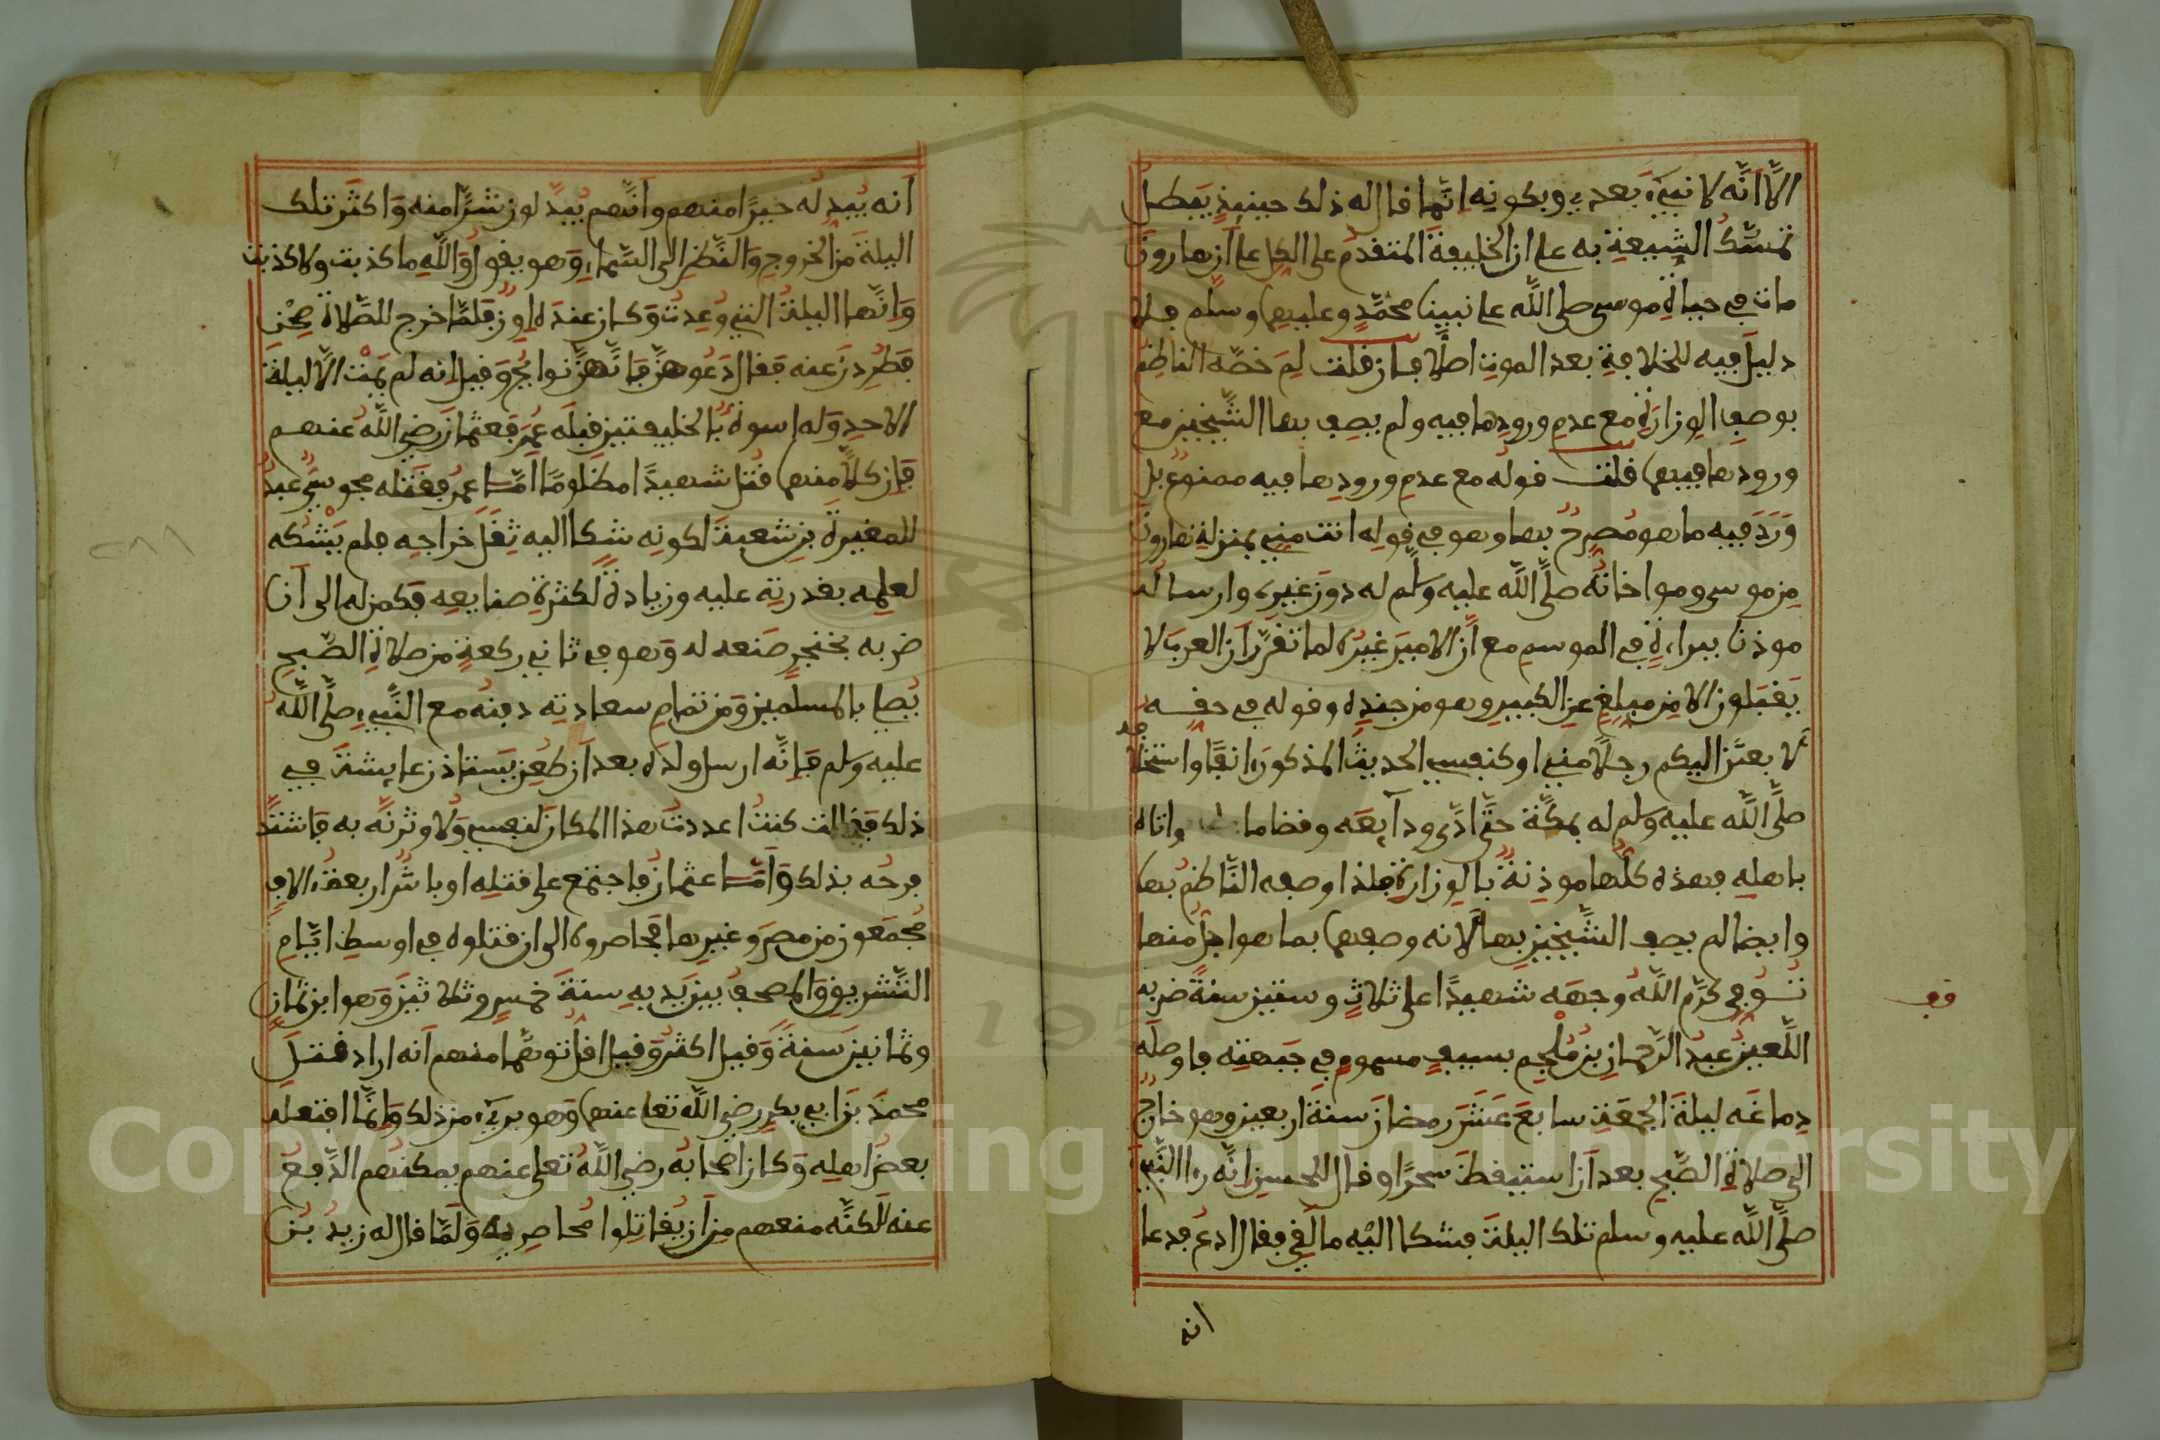 الا انه لا نبي بعدي وبكونه انما قال له ذلك حينئذ يبطل
تمسك الشيعة به على ان الخليفة المتقدم على الكل على ان هارون
مات في حياة موسى صلى الله على نبينا محمد وعليهما وسلم فلا
دليل فيه للخلافة بعد الموت اصلا فان قلت لم خصه الناظم
بوصف الوزارة مع عدم ورودها فيه ولم يصف بها الشيخين مع
ورودها فيهما قلت قوله مع عدم ورودها فيه ممنوع بل
ورد فيه ما هو مصرح بها وهو في قوله انت مني بمنزلة هارون
من موسى ومواخاته صلى الله عليه وسلم له دون غيره وارساله
موذنا ببراءة في الموسم مع ان الامير غيره لما تقرر ان العرب لا
يقبلون الا من مبلغ عن الكبير وهو من جنده وقوله في حقه
لا بعثن اليكم رجلا مني او كنفسي الحديث المذكور انفا واستخلافه
صلى الله عليه وسلم له بمكة حتى ادى ودائعه وقضا ما واتاه
باهله فهذه كلها موذنة بالوزارة فلذا وصفه الناظم بها
وايضا لم يصف الشيخين بها لانه وصفهما بما هو اجل منها
توفي كرم الله وجهه شهيدا على ثلاث وستين سنة ضربه
قف
اللعين عبد الرحمان بن ملجم بسيف مسموم في جبهته فاوصله
دماغه ليلة الجمعة سابع عشر رمضان سنة اربعين وهو خارج
الى صلاة الصبح بعد ان استيقظ سحرا وقال للحسن انه راا النبي
صلى الله عليه وسلم تلك اليلة فشكا اليه ما لقي فقال ادع فدعا
انه
انه يبدله خيرا منهم وانهم يبدلون شرا منه واكثر تلك
اليلة من الخروج والنظر الى السماء وهو يقول والله ما كذبت ولا كذبت
وانها اليلة التي وعدت وكان عنده اوز فلما خرج للصلاة صحن
فطردن عنه فقال دعوهن فانهن نوايح وقيل انه لم يمت الا ليلة
الاحد وله اسوة بالخليفتين قبله عمر فعثمان رضي الله عنهم
فان كلا منهما قتل شهيدا مظلوما اما عمر فقتله مجوسي عبد
للمغيرة بن شعبة لكونه شكا اليه ثقل خراجه فلم يشكه
لعلمه بقدرته عليه وزيادة لكثرة صنايعه فكمن له الى ان
ضربه بخنجر صنعه له وهو في ثاني ركعة من صلاة الصبح
يصلي بالمسلمين ومن تمام سعادته دفنه مع النبي صلى الله
عليه وسلم فانه ارسل ولده بعد ان طعن يستاذن عايشة في
ذلك فقالت كنت اعددت هذا المكان لنفسي ولاوثرنه به فاشتد
فرحه بذلك واما عثمان فاجتمع على قتله اوباش اربعة الاف
مجمعون من مصر وغيرها فحاصروه الى ان قتلوه في اوسط ايام
التشريق والمصحف بين يديه سنة خمس وثلاثين وهو ابن ثمان
وثمانين سنة وقيل اكثر وقيل اقل توهما منهم انه اراد قتل
محمد بن ابي بكر رضي الله تعلى عنهما وهو بريء من ذلك وانما افتعله
بعض اهله وكان اصحابه رضي الله تعلى عنهم يمكنهم الدفع
عنه لكنه منعهم من ان يقاتلوا محاصريه ولما قال له زيد بن
Copyright © King Saud University
1957